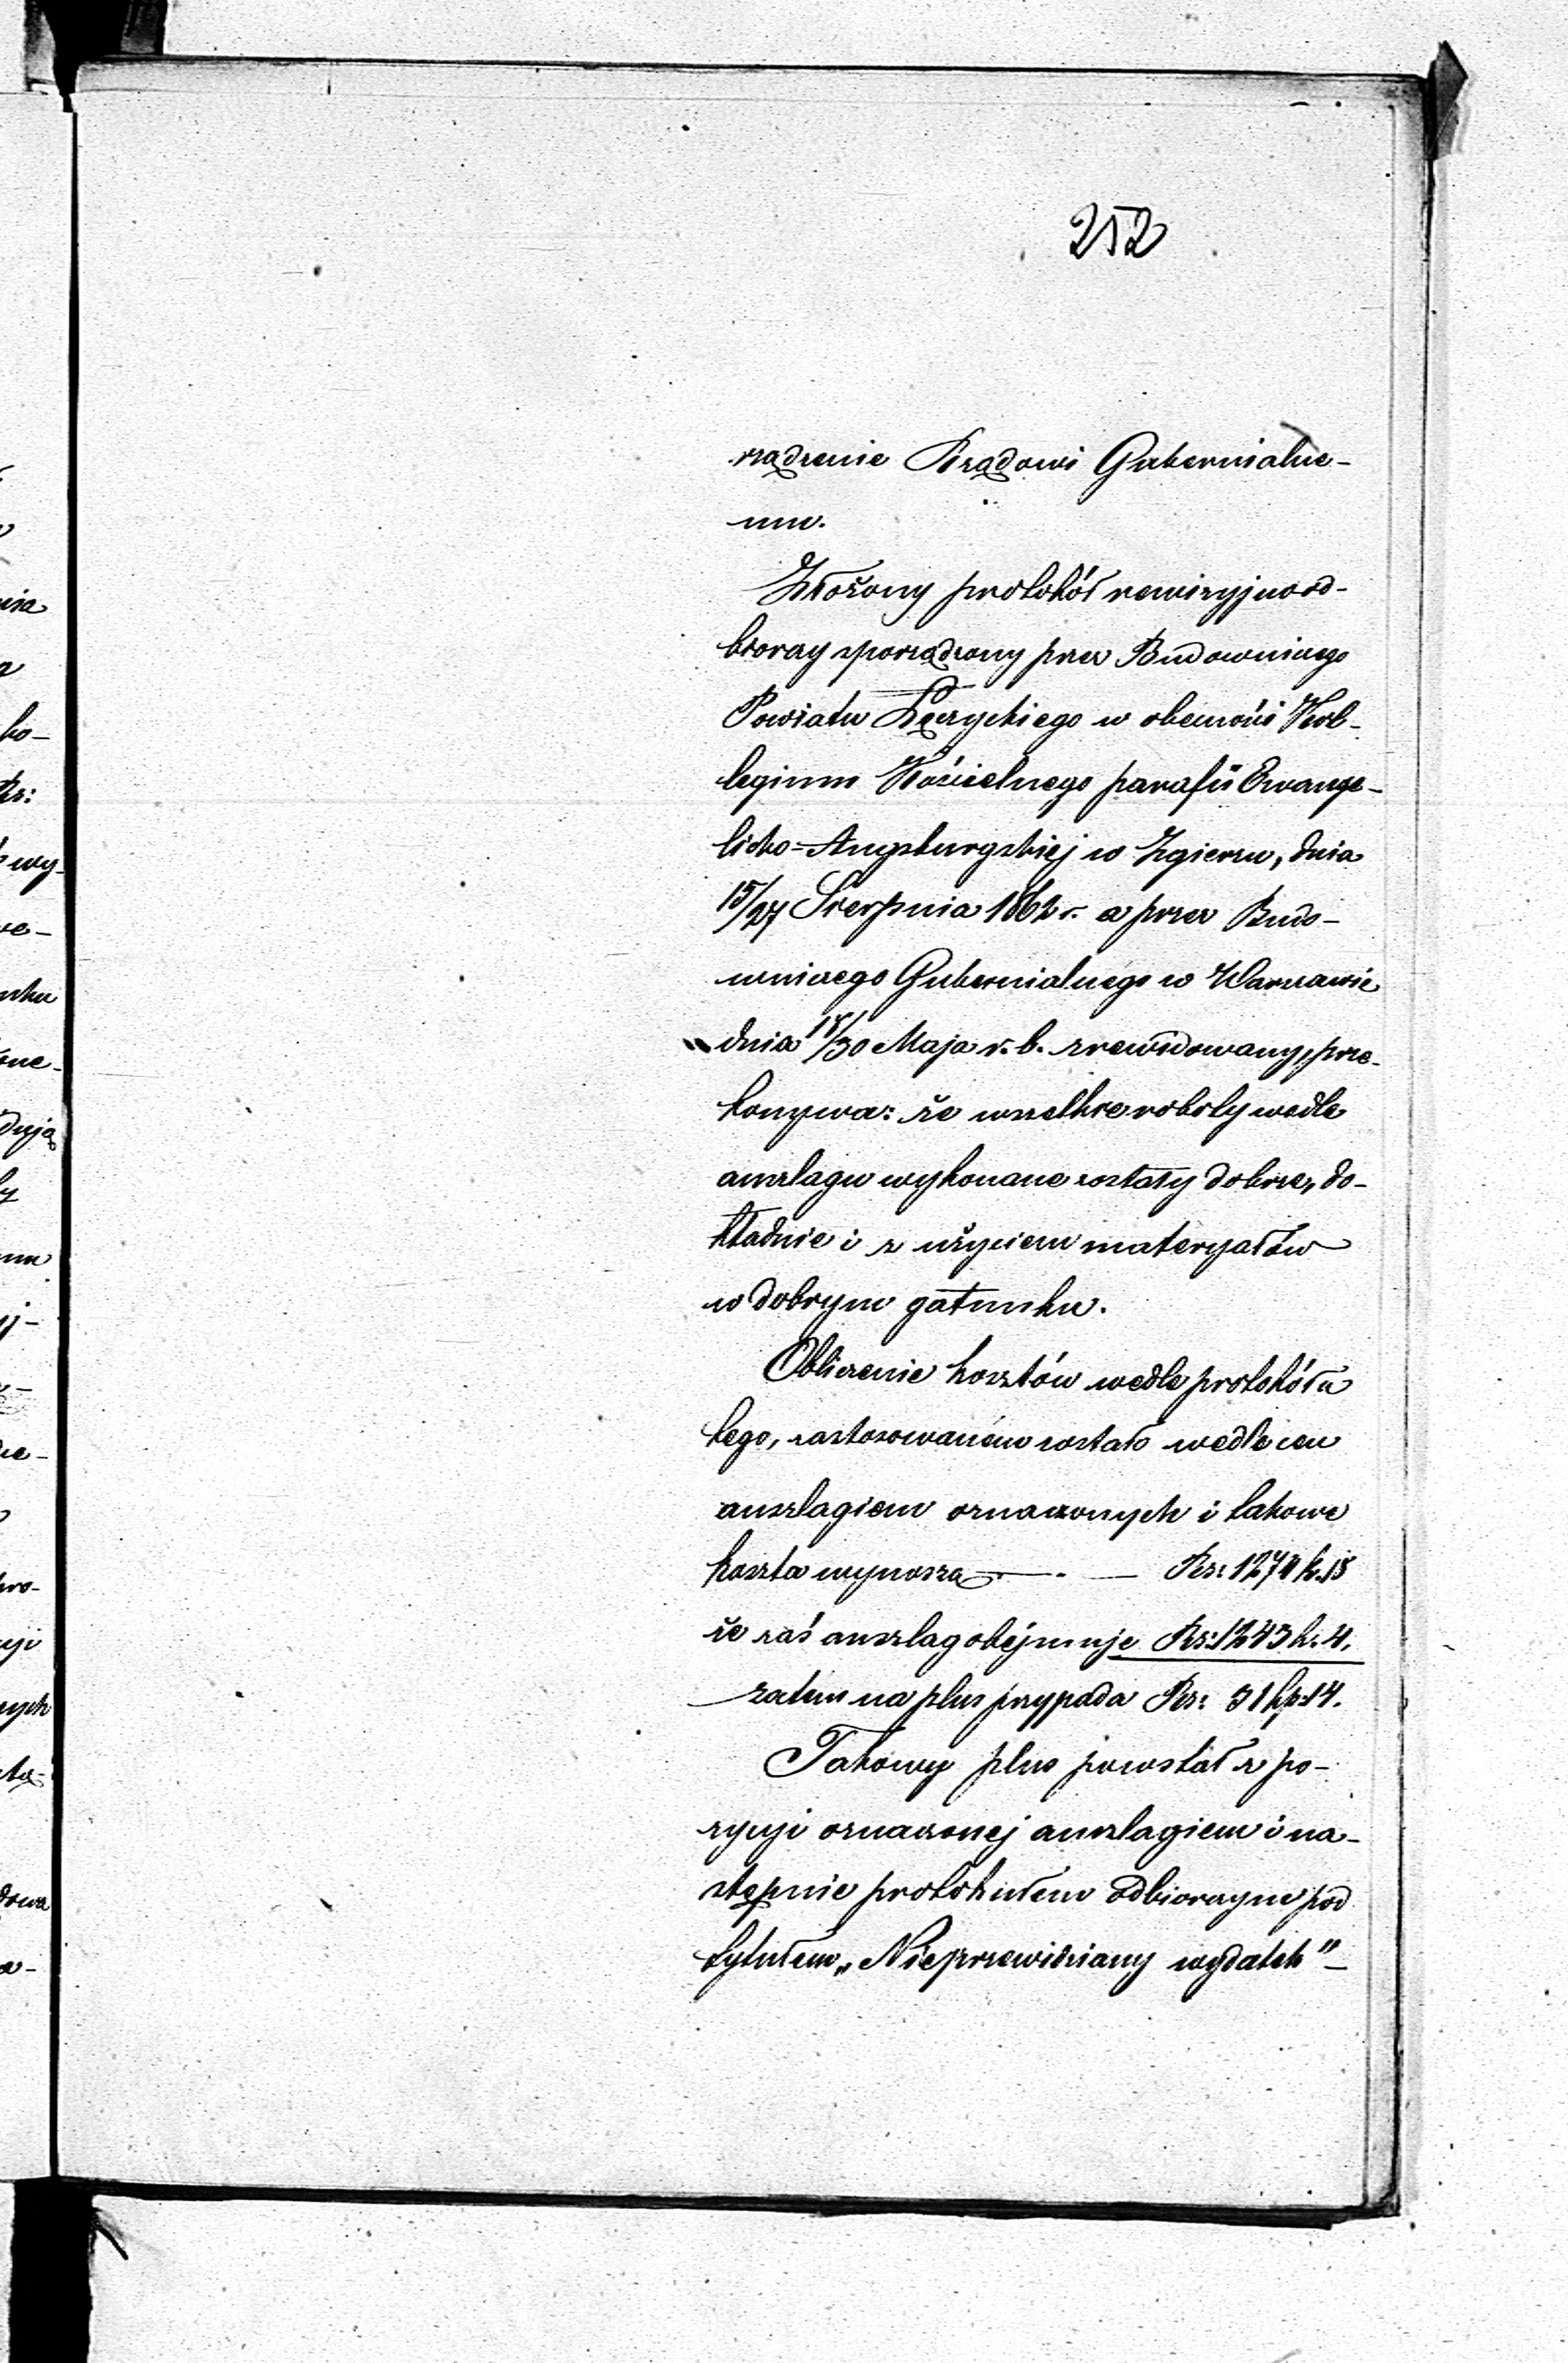 252
rządzenie Rządowi Gubernialne-
mu.
Złożony protokół rewizyjno od-
biorczy sporządzony przez Budowniczego
Powiatu Łęczyckiego w obecności Kol-
legium Kościelnego parafii Ewange-
licko=Augsburgskiej w Zgierzu, dnia
15/27 Sierpnia 1862 r. a przez Budo-
wniczego Gubernialnego w Warszawie
dnia 18/30 Maja r. b. zrewidowany, prze-
konywa: że wszelkie roboty wedle
anszlagu wykonane zostały dobrze, do-
kładnie i z użyciem materyałów
w dobrym gatunku.
Obliczenie kosztów wedle protokółu
tego, zastosowaném zostało wedle cen
anszlagiem oznaczonych i takowe
koszta wynoszą — . — Rs: 1274 k. 18
że zaś anszlag obejmuje Rs: 1243 k. 4.
zatem na plus przypada Rs: 31 kp: 14.
Takowy plus powstał z po-
zycyi oznaczonej anszlagiem i na-
stępnie protokułem odbiorczym pod
tytułem „Nieprzewidziany wydatek"—
nia
ko-
Rs:
wy-
nku
dują
by
pro-
cyi
nych